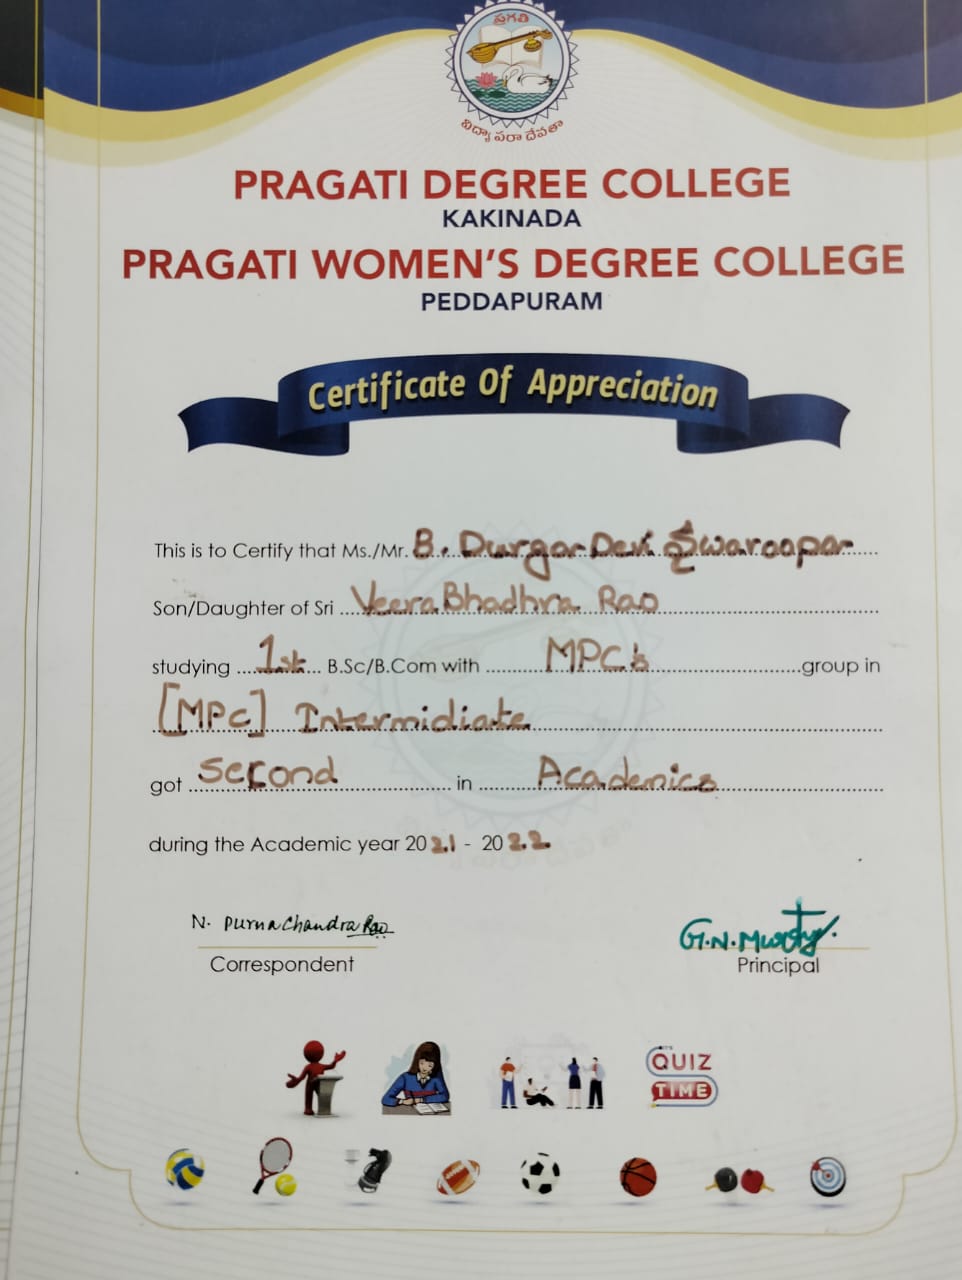 ప్రగతి
విద్యా పరా దేవతా
PRAGATI DEGREE COLLEGE
KAKINADA
PRAGATI WOMEN'S DEGREE COLLEGE
PEDDAPURAM
Certificate Of Appreciation
This is to Certify that Ms./Mr. B. Durga Devi Swaroopa
Son/Daughter of Sri Veera Bhadhra Rao
studying 1st B.Sc/B.Com with MPC's group in
[MPC] Intermidiate
got Second in Academics
during the Academic year 2021 - 2022
N. Purna Chandra Rao G.N.Murthy.
Correspondent Principal
IT'S
QUIZ
TIME